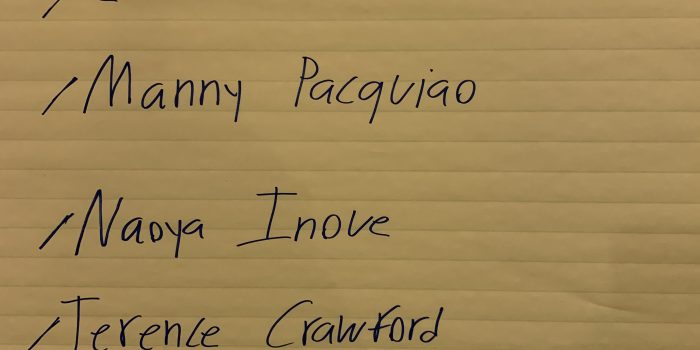 /Manny Pacquiao
/Naoya Inoue
/Terence Crawford